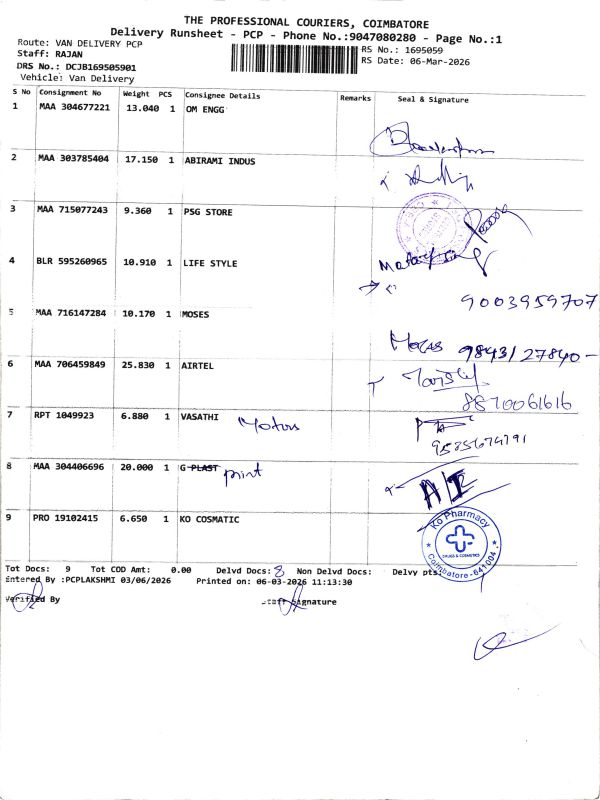 THE PROFESSIONAL COURIERS, COIMBATORE
Delivery Runsheet - PCP - Phone No.:9047080280 - Page No.:1
Route: VAN DELIVERY PCP
Staff: RAJAN
DRS No.: DCJB169505901
Vehicle: Van Delivery
RS No.: 1695059
RS Date: 06-Mar-2026
S No Consignment No Weight PCS Consignee Details Remarks Seal & Signature
1 MAA 304677221 13.040 1 OM ENGG
2 MAA 303785404 17.150 1 ABIRAMI INDUS
3 MAA 715077243 9.360 1 PSG STORE
4 BLR 595260965 10.910 1 LIFE STYLE
9003959707
5 MAA 716147284 10.170 1 MOSES
Moses 9843127840-
6 MAA 706459849 25.830 1 AIRTEL
8870061616
7 RPT 1049923 6.880 1 VASATHI Motors
8 MAA 304406696 20.000 1 G PLAST print
9 PRO 19102415 6.650 1 KO COSMATIC
Ko Pharmacy
DRUGS & COSMETICS
Coimbatore-641004
Tot Docs: 9 Tot COD Amt: 0.00 Delvd Docs: 8 Non Delvd Docs: Delvy pts:
Entered By :PCPLAKSHMI 03/06/2026 Printed on: 06-03-2026 11:13:30
Verified By Staff Signature